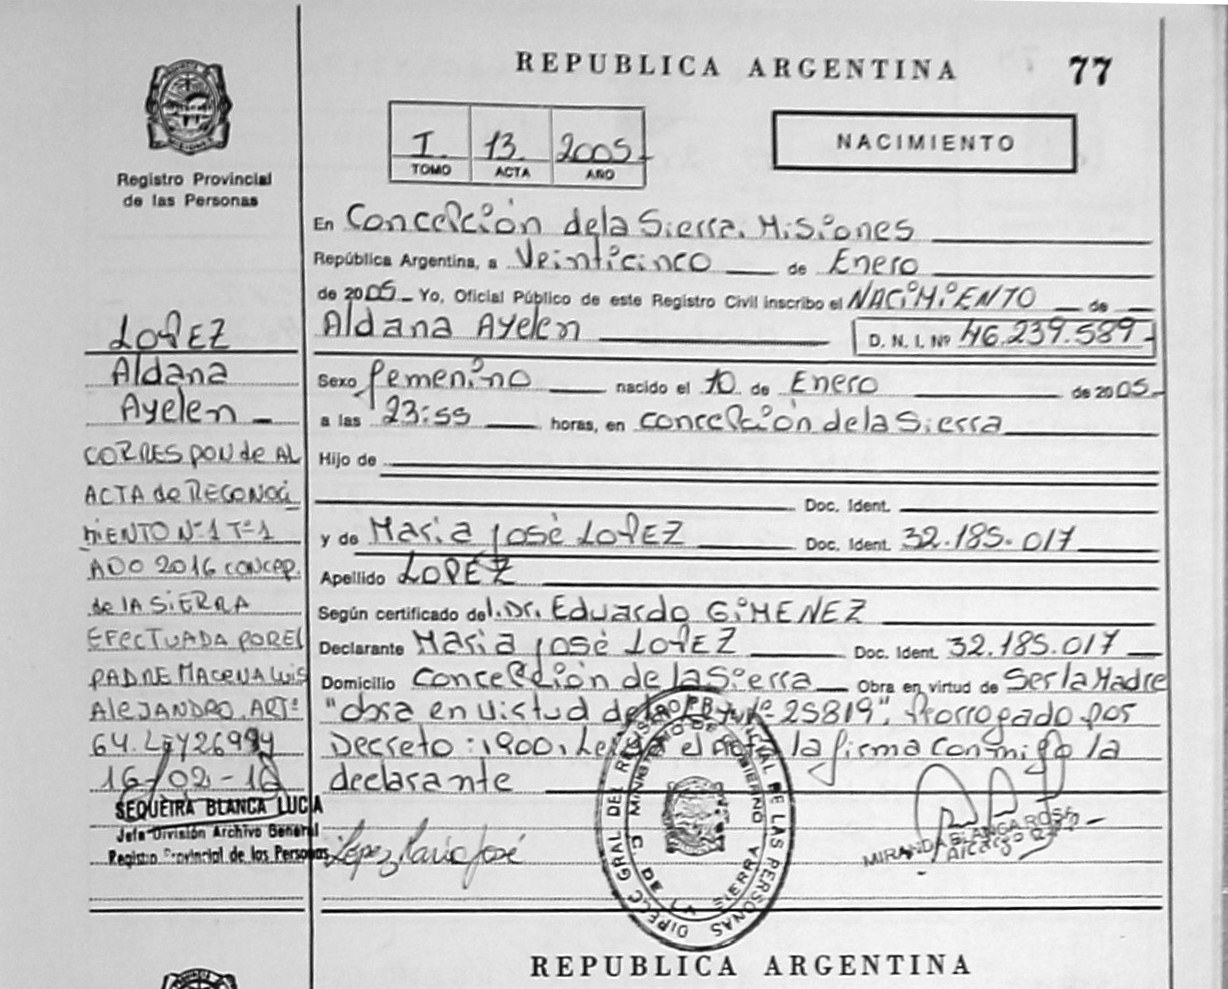 REPUBLICA ARGENTINA 77
Registro Provincial
de las Personas
I. 13. 2005
TOMO ACTA AÑO
NACIMIENTO
En Concepción de la Sierra. Misiones
República Argentina, a Veinticinco de Enero
de 2005 Yo, Oficial Público de este Registro Civil inscribo el NACIMIENTO de
Aldana Ayelen D. N. I. Nº 46.239.589
Sexo femenino nacido el 10 de Enero de 2005
a las 23:55 horas, en concepción de la Sierra
Hijo de
Doc. Ident.
y de Maria José LOPEZ Doc. Ident. 32.185.017
Apellido LOPÉZ
Según certificado del. Dr. Eduardo GIMENEZ
Declarante Maria José LOPEZ Doc. Ident. 32.185.017
Domicilio concepción de la Sierra Obra en virtud de Ser la Madre
"obra en virtud de Nº 25819". Prorrogado por
Decreto: 1900, el la firma conmigo la
declarante
LOPEZ
Aldana
Ayelen
CORRESPONDE AL
ACTA de RECONOCI
MIENTO Nº1 Tº1
AÑO 2016 concep.
de la SIERRA
EFECTUADA POR EL
PADRE MACENA LUIS
ALEJANDRO. ARTº
64. LEY 26994
16-02-16
SEQUEIRA BLANCA LUCIA
Jefe División Archivo General
Registro Provincial de las Personas
López María José
DIREC. GRAL DEL REGISTRO PROVINCIAL DE LAS PERSONAS
MINISTERIO DE GOBIERNO
C. DE LA SIERRA
MIRANDA BLANCA ROSA
REPUBLICA ARGENTINA